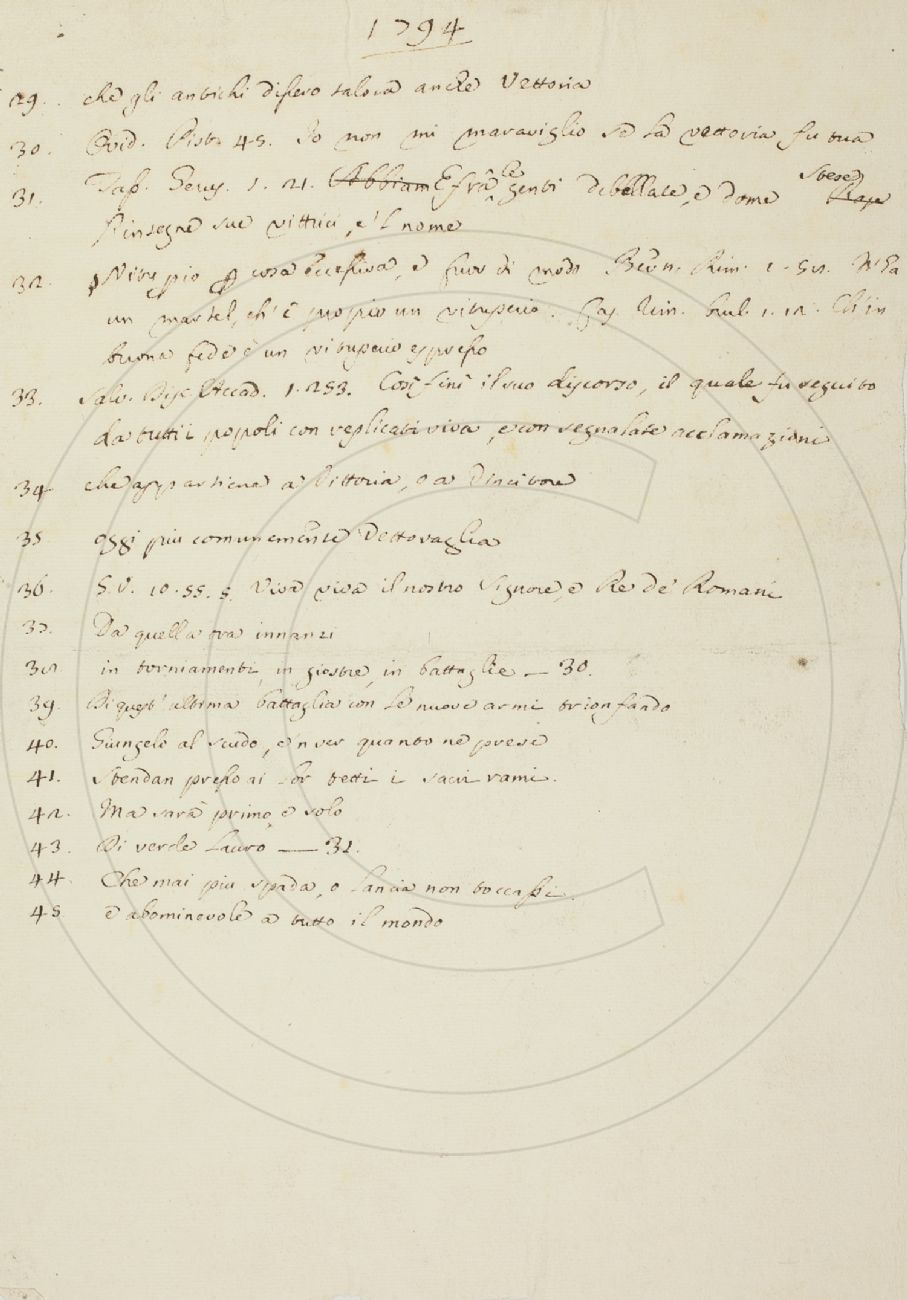 1794
29. che gli antichi dissero talora anche Vettoria
30. Ovid. Pist. 45. Io non mi maraviglio se la vettoria fu tua
31. Tass. Gerus. 1. 21. Abbiam E fra le genti debellate, e dome Stese Rase
l'insegne sue vittrici, e 'l nome
32. cosa eccessiva, e fuor di modo Rim. 1. Ell'ha
un martel, ch'è propio un vituperio. Fag. Rim. 1. 12. Ch'in
buona fede è un vituperio espresso
33. Salv. Disc. Accad. 1. 253. Così finì il suo discorso, il quale fu seguito
da tutti i popoli con replicati viva, e con segnalate acclamazioni
34 che appartiene a Vittoria, o a Vincitore
35 oggi più comunemente Vettovaglia
36. G. V. 10. 55. 5. Viva viva il nostro Signore, e Re de' Romani
37. Da quella ora innanzi
38 in torniamenti, in giostre, in battaglie — 30.
39. Di quest' ultima battaglia con le nuove armi trionfando
40. Giungelo al scudo, e 'n ver quanto ne prese
41. Stendan presso ai lor tetti i sacri rami.
42. Ma sarà primo, e solo
43. Di verde Lauro — 32.
44. Che mai più spada, o lancia non toccassi.
45 è abominevole a tutto il mondo